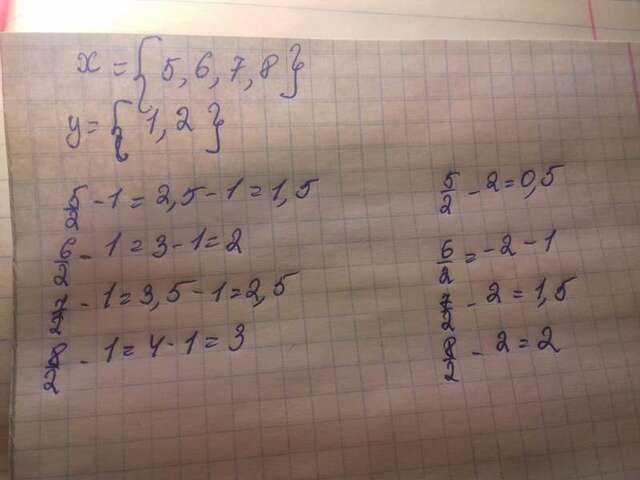 x = { 5, 6, 7, 8 }
y = { 1, 2 }
5/2 - 1 = 2,5 - 1 = 1,5
6/2 - 1 = 3 - 1 = 2
7/2 - 1 = 3,5 - 1 = 2,5
8/2 - 1 = 4 - 1 = 3
5/2 - 2 = 0,5
6/2 = -2 - 1
7/2 - 2 = 1,5
8/2 - 2 = 2